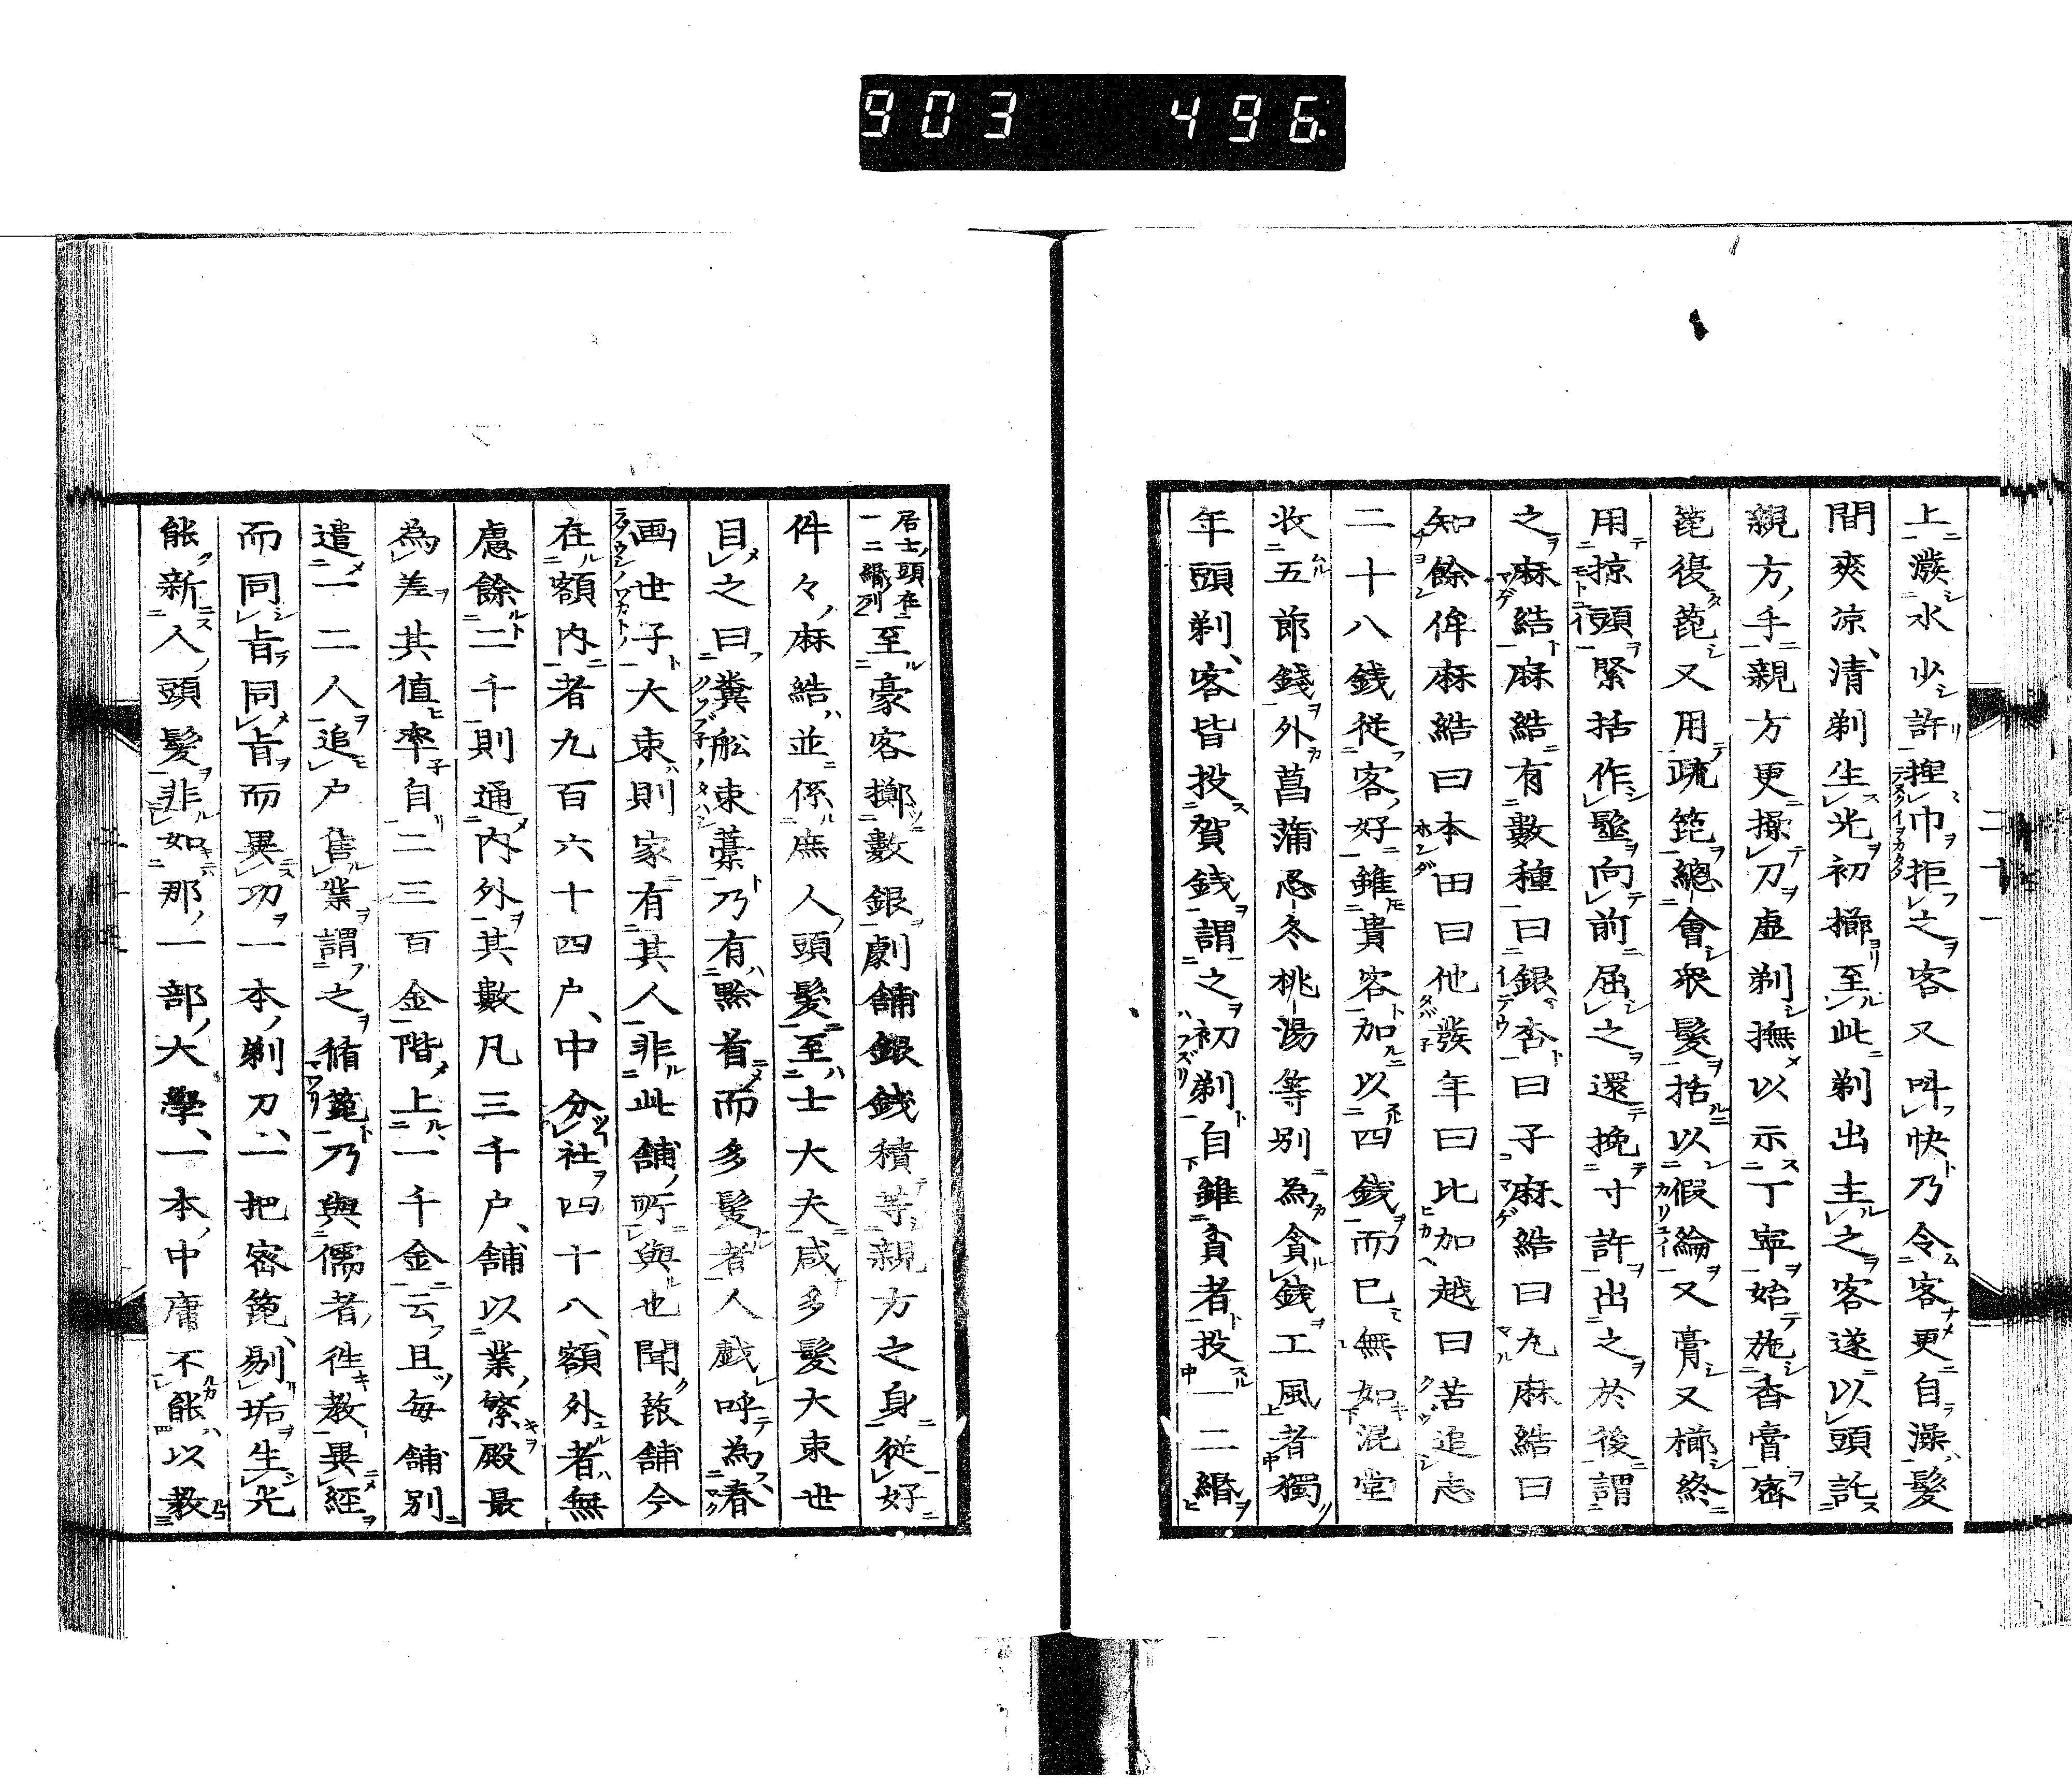 903 496
上潑水少許捏巾拒之客又叫快乃令客更自澡髮
間爽涼、清剃生光初櫛至此剃出主之客遂以頭託
親方手親方更操刀虛剃撫以示丁寧始施香膏密
篦復篦又用疏篦總會衆髮括以假綸又膏又櫛終
用掠頭緊括作髷向前屈之還挽寸許出之於後謂
之麻結麻結有數種曰銀杏曰子麻結曰丸麻結曰
知餘侔麻結曰本田曰他發年曰比加越曰苦追志
二十八銭從客好雖貴客加以四銭而已無如混堂
收五節錢外菖蒲忍冬桃湯等別為貪銭工風者獨
年頭剃、客皆投賀銭謂之初剃自雖貧者投一二緡
居士頭在一二緡列至豪客擲數銀劇舗銀銭積等親方之身從好
件々麻結並係庶人頭髮至士大夫咸多髮大束世
目之曰糞舩束藁乃有黔首而多髮者人戯呼為春
画世子大束則家有其人非此舗所與也聞篦舗今
在額内者九百六十四户、中分社四十八、額外者無
慮餘二千則通内外其數凡三千户、舗以業繁殿最
為差其値率自二三百金階上一千金云且毎舗別
遣一二人追户售業謂之循篦乃與儒者徃教異經
而同㫖同㫖而異功一本剃刀、一把密篦、剔垢生光
能新人頭髮非如那一部大學、一本中庸不能以教